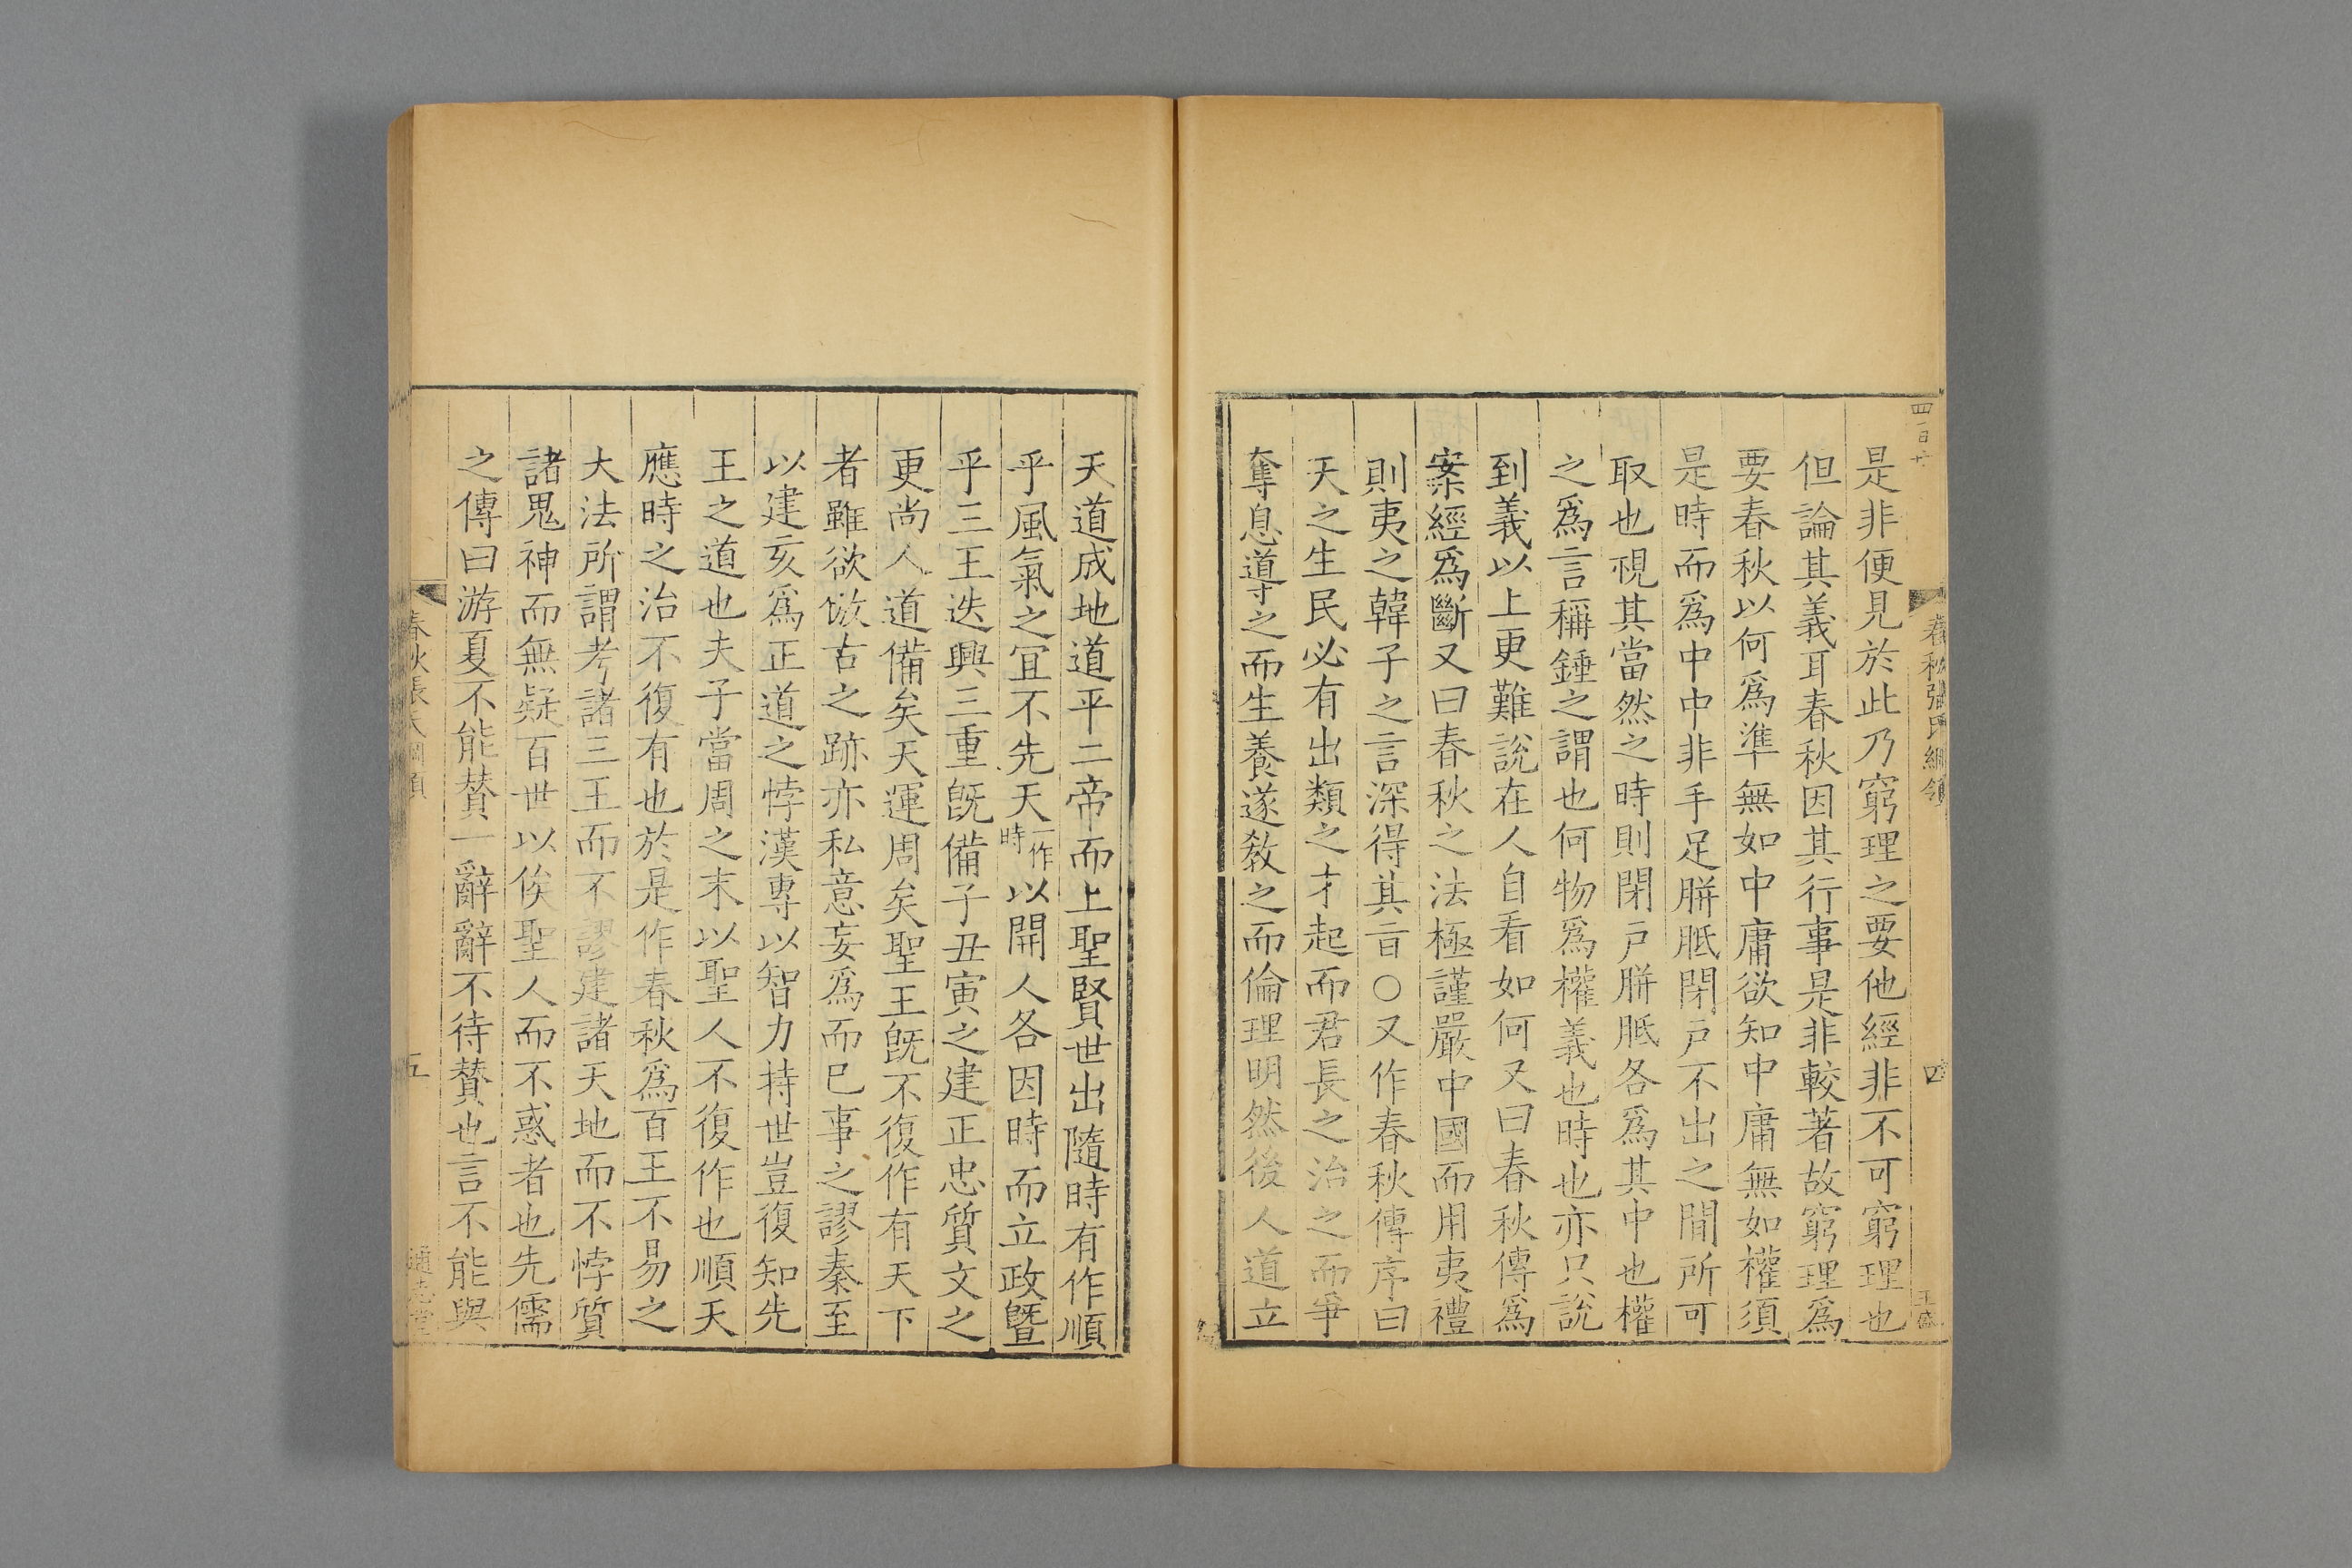 四百廿
春秋張氏綱領
四
王盛
是非便見於此乃窮理之要他經非不可窮理也
但論其義耳春秋因其行事是非較著故窮理爲
要春秋以何爲準無如中庸欲知中庸無如權須
是時而爲中中非手足胼胝閉户不出之間所可
取也視其當然之時則閉户胼胝各爲其中也權
之爲言稱錘之謂也何物爲權義也時也亦只說
到義以上更難說在人自看如何又曰春秋傳爲
案經爲斷又曰春秋之法極謹嚴中國而用夷禮
則夷之韓子之言深得其旨○又作春秋傳序曰
天之生民必有出類之才起而君長之治之而爭
奪息導之而生養遂敎之而倫理明然後人道立
天道成地道平二帝而上聖賢世出隨時有作順
乎風氣之宜不先天一作時以開人各因時而立政暨
乎三王迭興三重旣備子丑寅之建正忠質文之
更尚人道備矣天運周矣聖王旣不復作有天下
者雖欲倣古之跡亦私意妄爲而已事之謬秦至
以建亥爲正道之悖漢專以智力持世豈復知先
王之道也夫子當周之末以聖人不復作也順天
應時之治不復有也於是作春秋爲百王不易之
大法所謂考諸三王而不謬建諸天地而不悖質
諸鬼神而無疑百世以俟聖人而不惑者也先儒
之傳曰游夏不能賛一辭辭不待賛也言不能與
春秋張氏綱領
五
通志堂